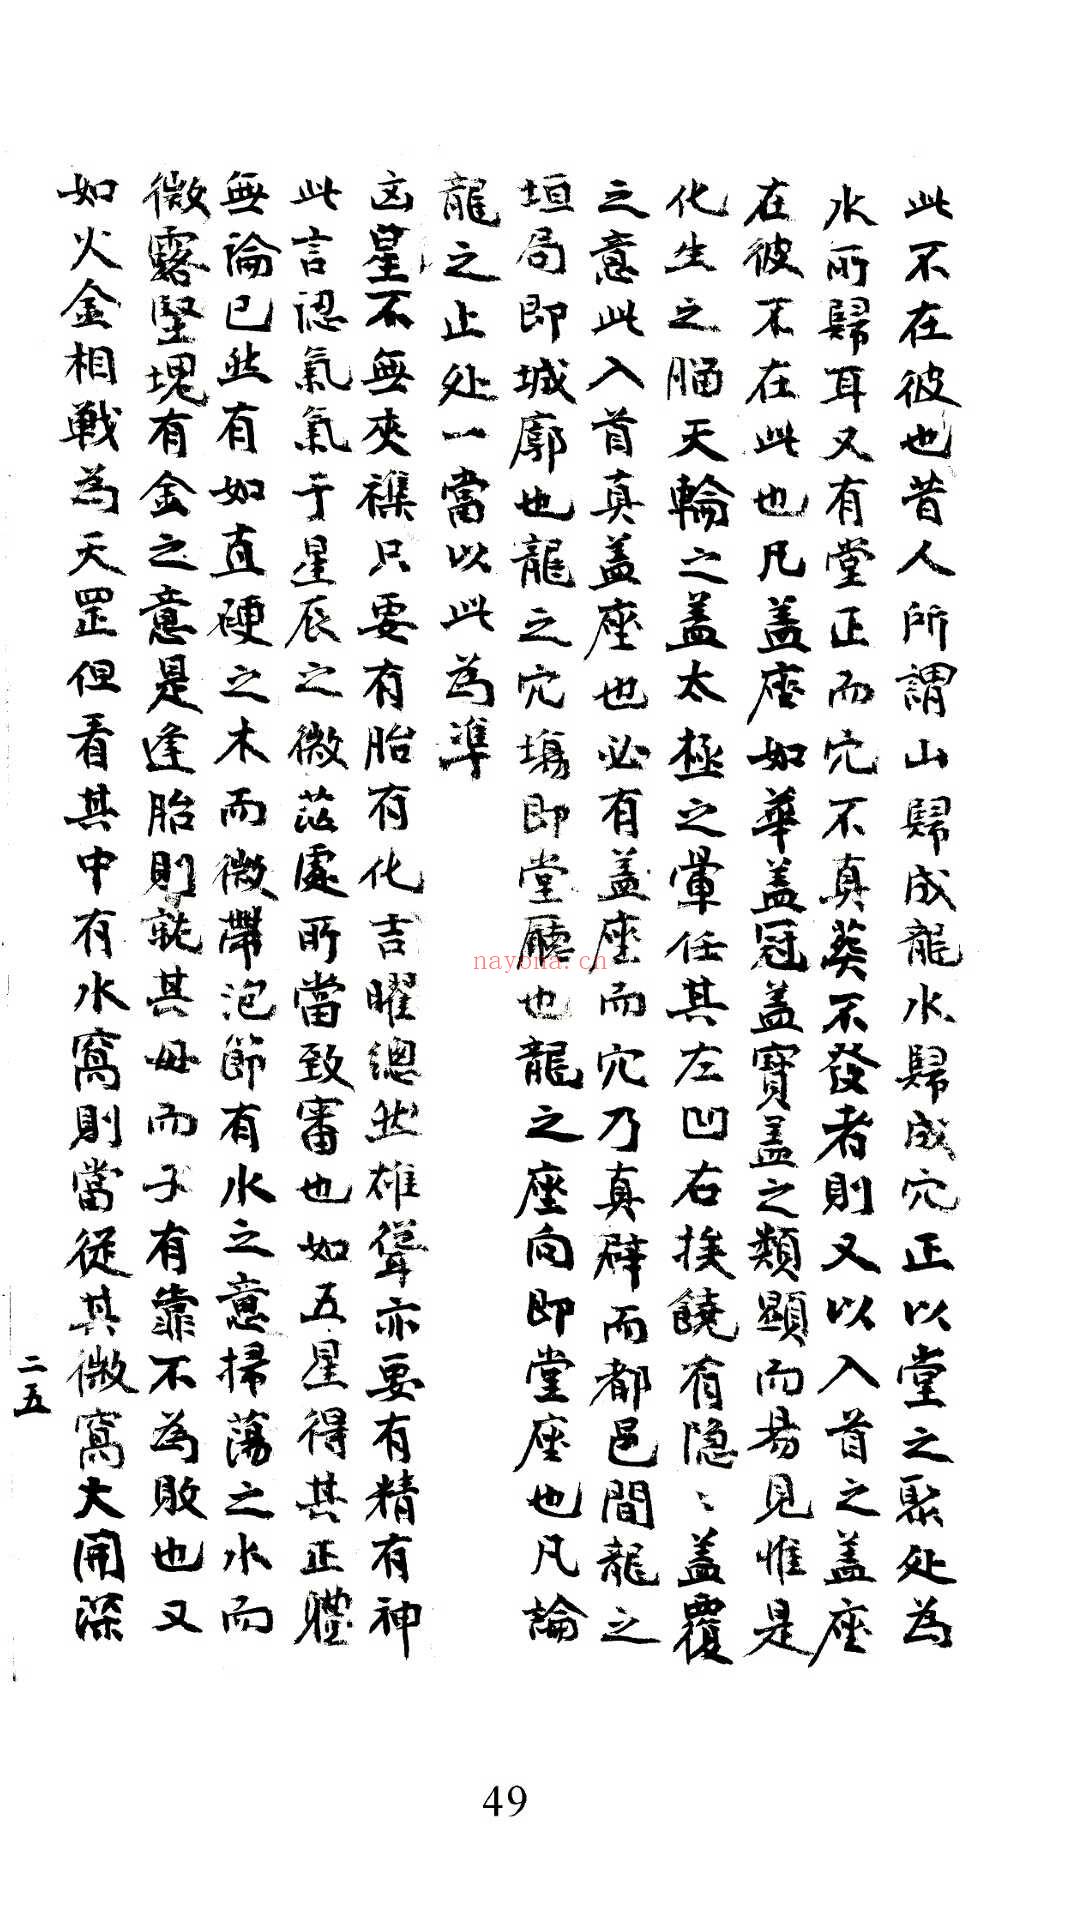 此不在彼也昔人所謂山歸成龍水歸成穴正以堂之聚处為
水所歸耳又有堂正而穴不真葬不發者則又以入首之盖座
在彼不在此也凡盖座如華盖冠盖寳盖之類顯而易見惟是
化生之腦天輪之盖太極之暈任其左凹右挨饒有隐〻盖覆
之意此入首真盖座也必有盖座而穴乃真辟而都邑間龍之
垣局即城廓也龍之穴塲即堂廳也龍之座向即堂座也凡論
龍之止处一當以此為準
凶星不無夾襍只要有胎有化吉曜總然雄聳亦要有精有神
此言認氣氣于星辰之微茫處所當致審也如五星得其正體
無論已然有如直硬之木而微帶泡節有水之意掃蕩之水而
微露堅塊有金之意是逢胎則就其母而子有靠不為敗也又
如火金相戰為天罡但看其中有水窩則當從其微窩大開深
二五
nayona.cn
49